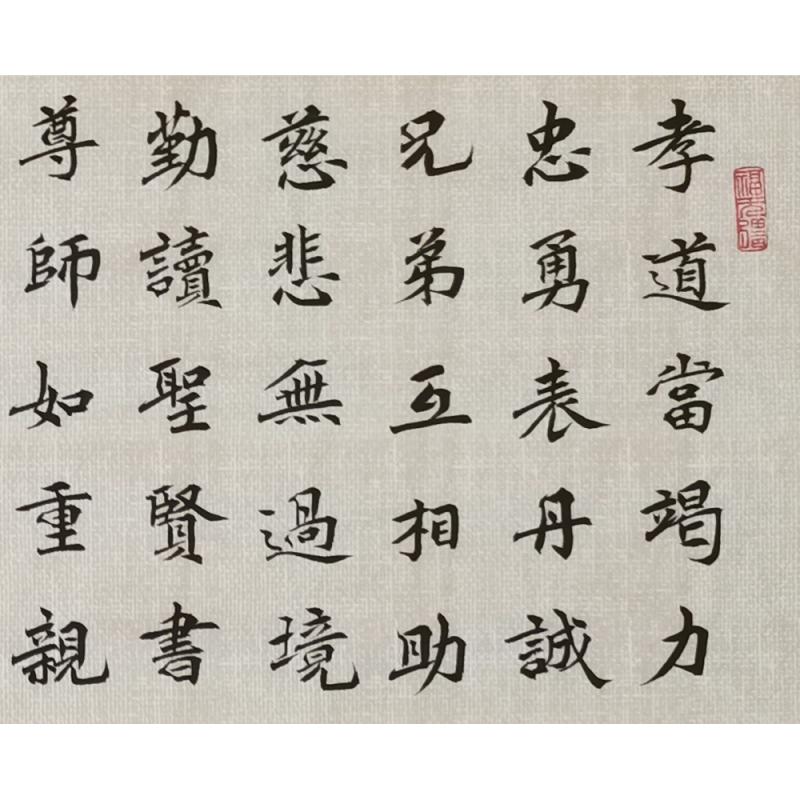 孝道當竭力
忠勇表丹誠
兄弟互相助
慈悲無過境
勤讀聖賢書
尊師如重親